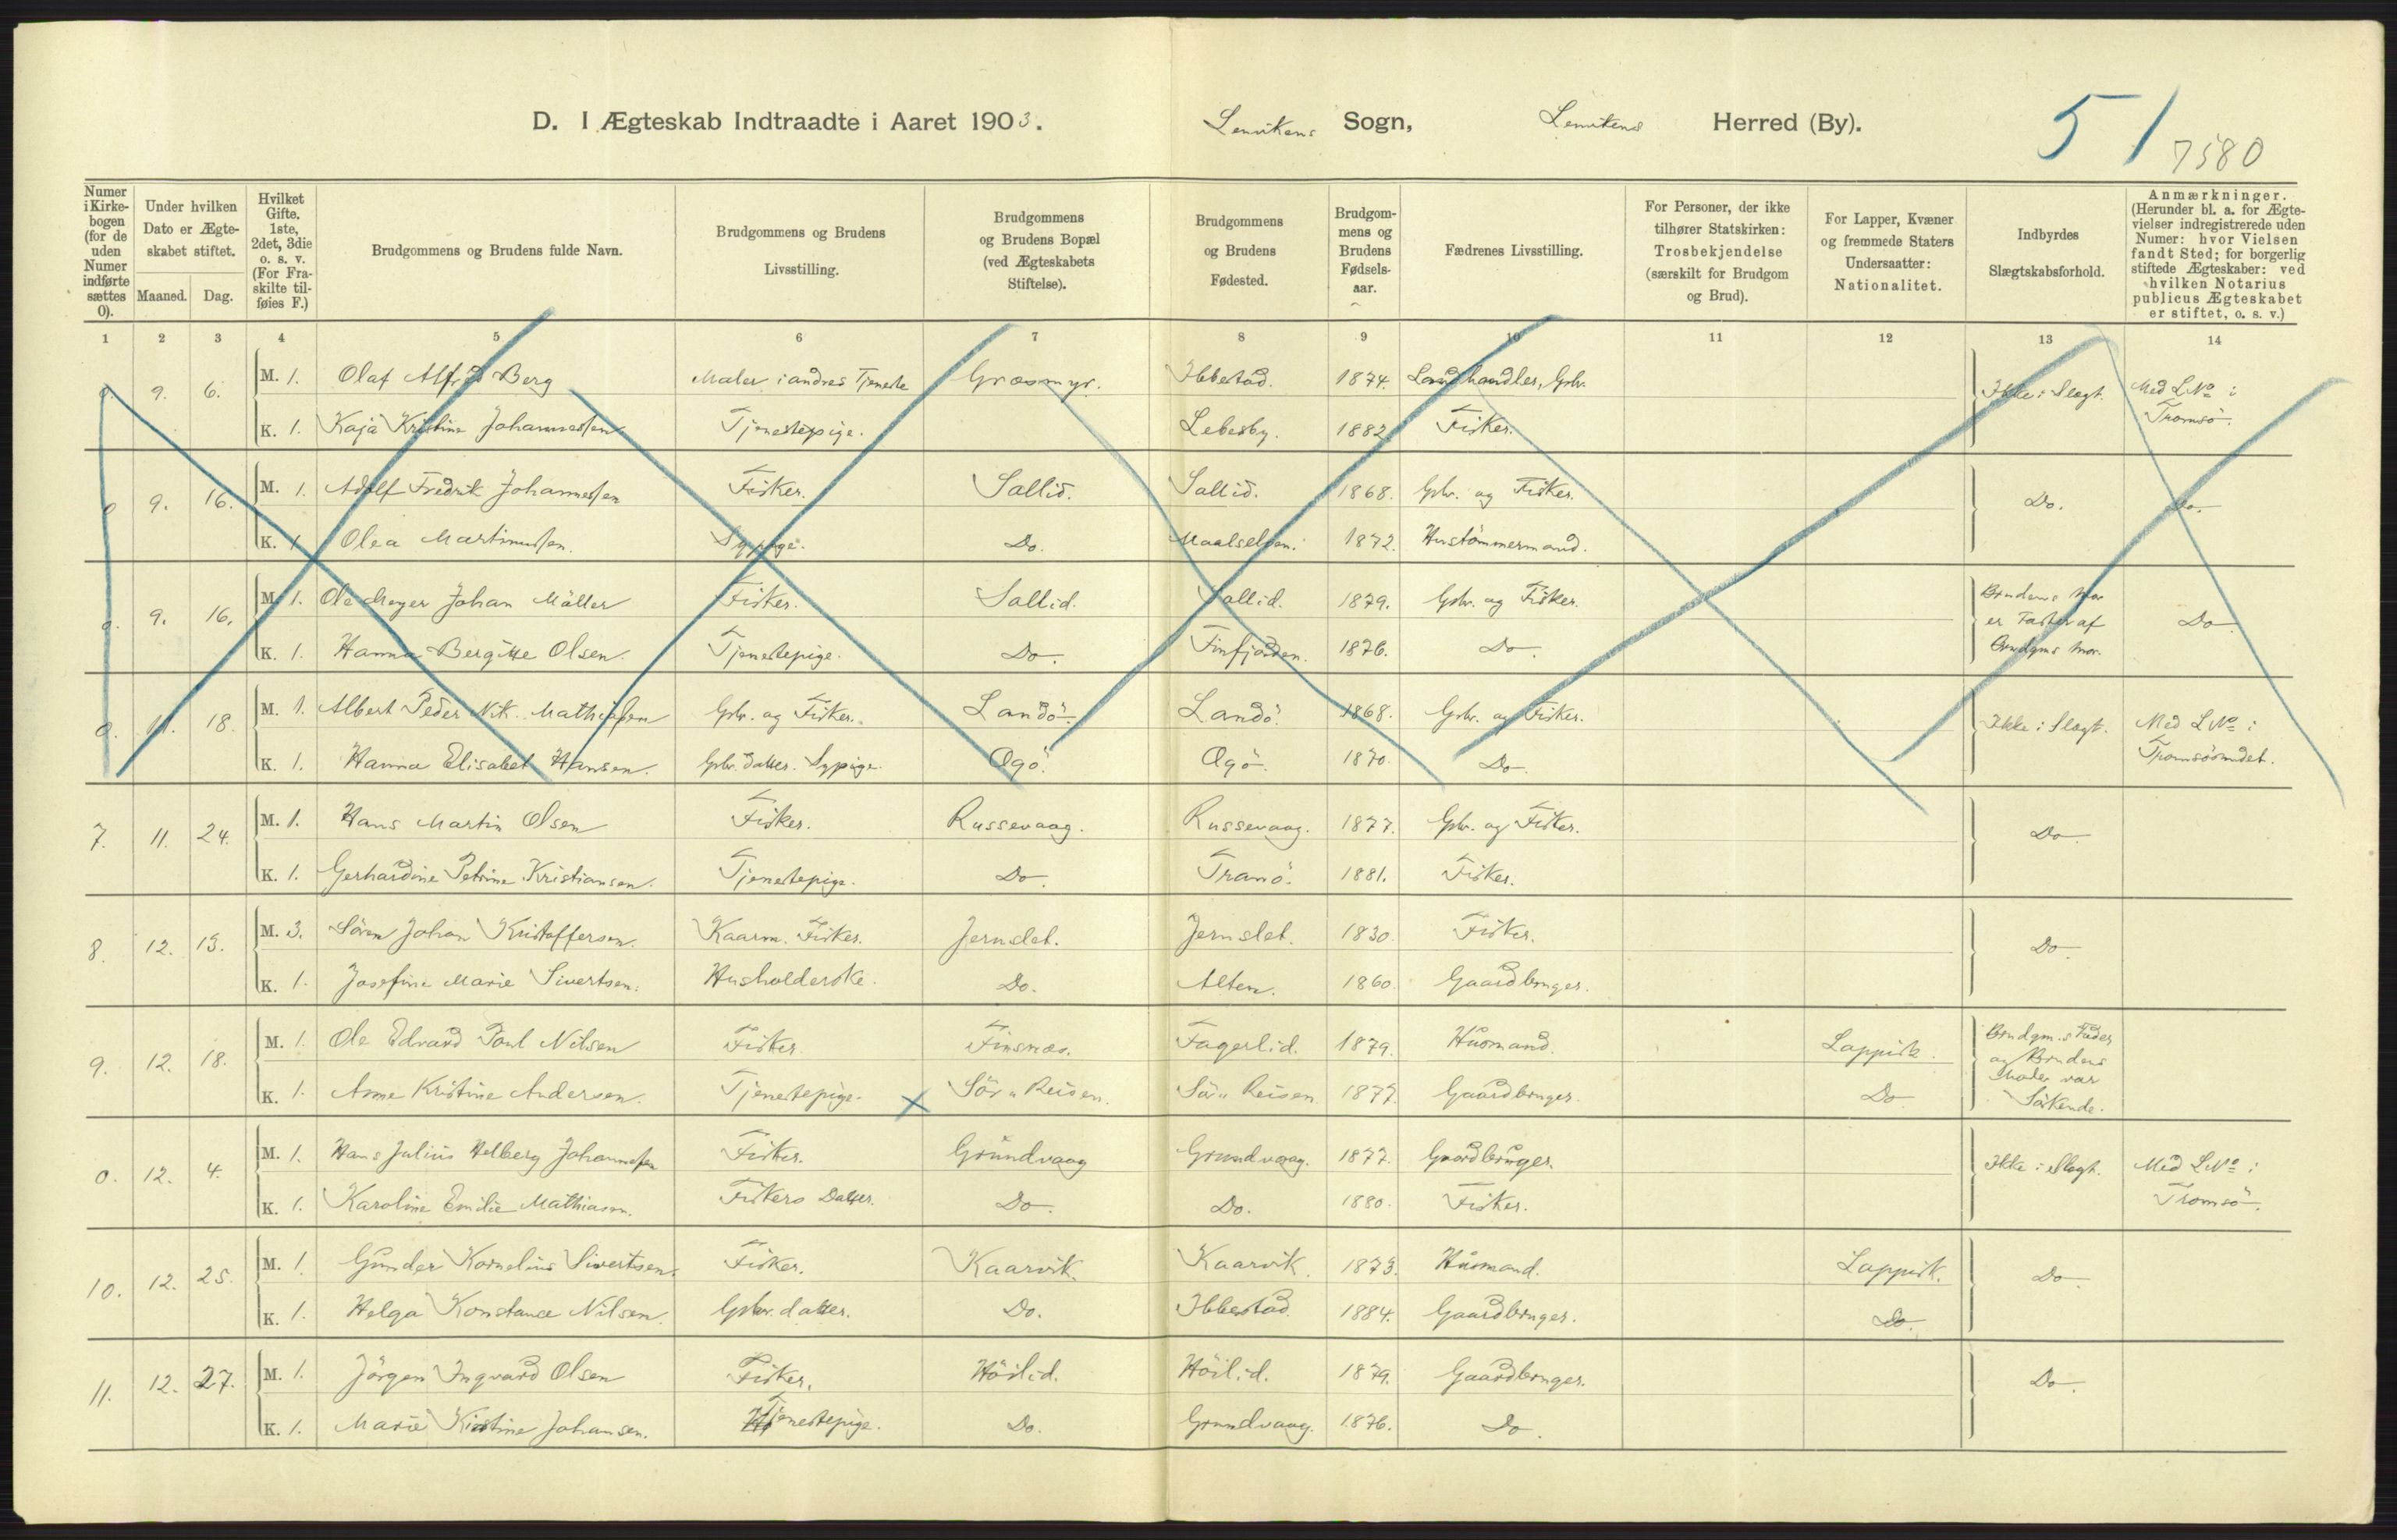 D. I Ægteskab Indtraadte i Aaret 1903. Lenvikens Sogn, Lenvikens Herred (By). 51
7580
Numer i Kirkebogen (for de uden Numer indførte sættes 0).
Under hvilken Dato er Ægteskabet stiftet.
Maaned. Dag.
Hvilket Gifte. 1ste, 2det, 3die o. s. v. (For Fraskilte tilføies F.)
Brudgommens og Brudens fulde Navn.
Brudgommens og Brudens Livsstilling.
Brudgommens og Brudens Bopæl (ved Ægteskabets Stiftelse).
Brudgommens og Brudens Fødested.
Brudgommens og Brudens Fødselsaar.
Fædrenes Livsstilling.
For Personer, der ikke tilhører Statskirken: Trosbekjendelse (særskilt for Brudgom og Brud).
For Lapper, Kvæner og fremmede Staters Undersaatter: Nationalitet.
Indbyrdes Slægtskabsforhold.
Anmærkninger. (Herunder bl. a. for Ægtevielser indregistrerede uden Numer: hvor Vielsen fandt Sted; for borgerlig stiftede Ægteskaber: ved hvilken Notarius publicus Ægteskabet er stiftet, o. s. v.)
1 2 3 4 5 6 7 8 9 10 11 12 13 14
0. 9. 6. M. 1. Olaf Alfred Berg Maler i andres Tjeneste Græsmyr. Ibbestad. 1874. Landhandler, Gbr. Ikke i Slægt. Med L.No i Tromsö.
K. 1. Kaja Kristine Johannessen Tjenestepige. Lebesby. 1882. Fisker.
0 9. 16. M. 1. Adolf Fredrik Johannessen Fisker. Sallid. Sallid. 1868. Gbr. og Fisker. Do. Do.
K. 1 Olea Martinussen. Sypige. Do. Maalselven. 1872. Hustömmermand.
0. 9. 16. M. 1. Ole Meyer Johan Möller Fisker. Sallid. Sallid. 1879. Gbr. og Fisker. Brudens Mor er Faster af Brudgms Mor. Do.
K. 1. Hanna Bergitte Olsen. Tjenestepige. Do. Finfjorden. 1876. Do.
0. 11. 18. M. 1. Albert Peder Nik. Mathiassen Gbr. og Fisker. Landö. Landö. 1868. Gbr. og Fisker. Ikke i Slægt. Med L.No i Tromsösundet.
K. 1. Hanna Elisabet Hansen. Gbr. datter. Sypige. Ogö. Ogö. 1870. Do.
7. 11. 24. M. 1. Hans Martin Olsen Fisker. Russevaag. Russevaag. 1877. Gbr. og Fisker. Do.
K. 1. Gerhardine Petrine Kristiansen. Tjenestepige. Do. Tranö. 1881. Fisker.
8. 12. 13. M. 3. Sören Johan Kristoffersen. Kaarm. Fisker. Jernslet. Jernslet. 1830. Fisker. Do.
K. 1. Josefine Marie Sivertsen. Husholderske. Do. Alten. 1860. Gaardbruger.
9. 12. 18. M. 1. Ole Edvard Paul Nilsen Fisker. Finsnæs. Fagerlid. 1879. Husmand. Lappisk. Brudgm.s Fader og Brudens Moder var Söskende.
K. 1. Anne Kristine Andersen. Tjenestepige. Sör Reisen. Sör Reisen. 1877. Gaardbruger. Do.
0. 12. 4. M. 1. Hans Julius Helberg Johannessen Fisker. Grundvaag Grundvaag. 1877. Gaardbruger. Ikke i Slægt. Med L.No i Tromsö.
K. 1. Karoline Emilie Mathiasen. Fiskers Datter. Do. Do. 1880. Fisker.
10. 12. 25. M. 1. Gunder Kornelius Sivertsen. Fisker. Kaarvik. Kaarvik. 1873. Husmand. Lappisk. Do.
K. 1. Helga Konstance Nilsen. Gbr. datter. Do. Ibbestad 1884. Gaardbruger. Do.
11. 12. 27. M. 1. Jörgen Ingvard Olsen Fisker. Höilid. Höilid. 1879. Gaardbruger. Do.
K. 1. Marie Kirstine Johansen. Tjenestepige. Do. Grundvaag. 1876. Do.